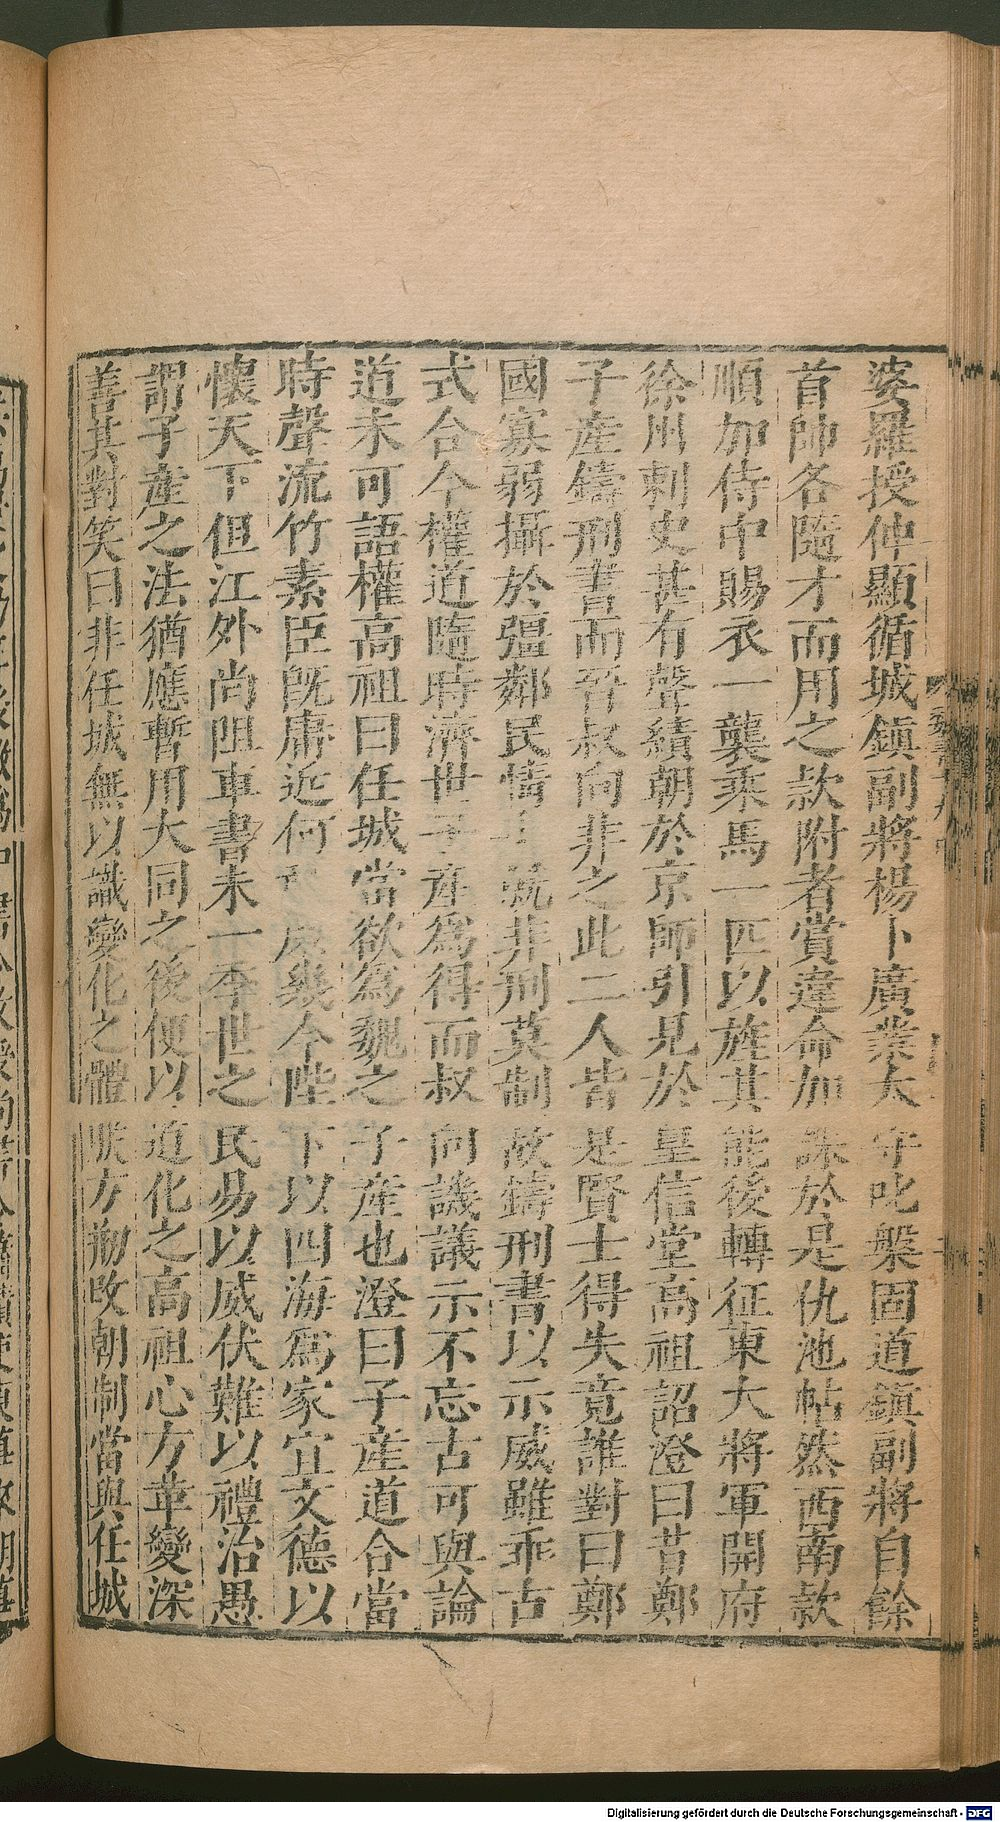 婆羅授仲顯循城鎮副將楊卜廣業太守叱槃固道鎮副將自餘
首帥各隨才而用之款附者賞違命加誅於是仇池帖然西南款
順加侍中賜衣一襲乘馬一匹以旌其能後轉征東大將軍開府
徐州刺史甚有聲績朝於京師引見於皇信堂高祖詔澄曰昔鄭
子產鑄刑書而晉叔向非之此二人皆是賢士得失竟誰對曰鄭
國寡弱攝於彊鄰民情 就非刑莫制故鑄刑書以示威雖乖古
式合今權道隨時濟世子產為得而叔向譏議示不忘古可與論
道未可語權高祖曰任城當欲為魏之子產也澄曰子產道合當
時聲流竹素臣既庸近何 庶幾今陛下以四海為家宣文德以
懷天下但江外尚阻車書未一季世之民易以威伏難以禮治愚
謂子產之法猶應暫用大同之後便以道化之高祖心方革變深
善其對笑曰非任城無以識變化之體朕方剏改朝制當與任城
Digitalisierung gefördert durch die Deutsche Forschungsgemeinschaft - DFG